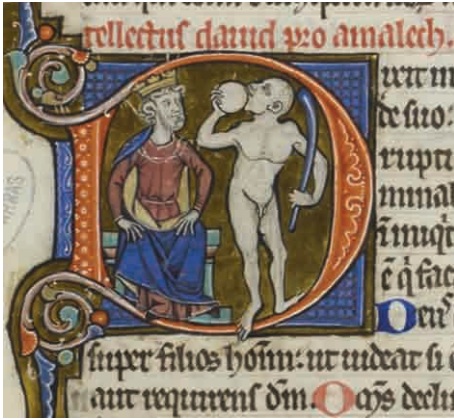 tellectus dauid pro amalech.
ixit in
de suo:
rupti
minab
ē q̄ fac
Deus
super filios hoīm: ut uideat si e
aut requirens dm̄. Om̄s decli